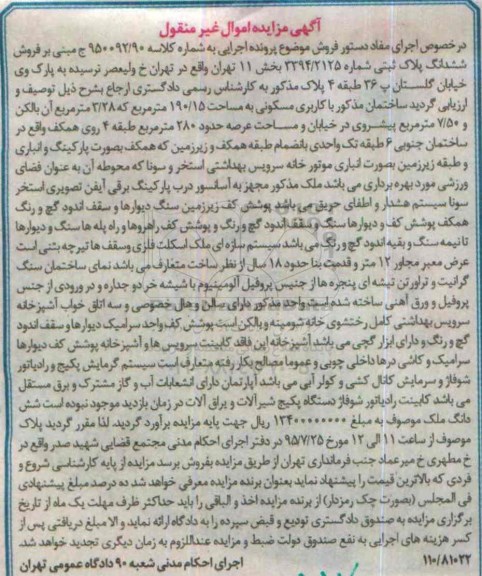 آگهی مزایده اموال غیر منقول
در خصوص اجرای مفاد دستور فروش موضوع پرونده اجرایی به شماره کلاسه ۹۵۰۰۹۲/۹۰ ج مبنی بر فروش
ششدانگ پلاک ثبتی شماره ۳۳۹۴/۲۱۲۵ بخش ۱۱ تهران واقع در تهران خ ولیعصر نرسیده به پارک وی
خیابان گلستان پ ۳۶ طبقه ۴ پلاک مذکور به کارشناس رسمی دادگستری ارجاع بشرح ذیل توصیف و
ارزیابی گردید ساختمان مذکور با کاربری مسکونی به مساحت ۱۹۰/۱۵ مترمربع که ۳/۲۸ مترمربع آن بالکن
و ۷/۵۰ مترمربع پیشروی در خیابان و مساحت عرصه حدود ۲۸۰ مترمربع طبقه ۴ روی همکف واقع در
ساختمان جنوبی ۶ طبقه تک واحدی بانضمام طبقه همکف و زیرزمین که همکف بصورت پارکینگ و انباری
و طبقه زیرزمین بصورت انباری موتور خانه سرویس بهداشتی استخر و سونا که محوطه آن به عنوان فضای
ورزشی مورد بهره برداری می باشد ملک مذکور مجهز به آسانسور درب پارکینگ برقی آیفن تصویری استخر
سونا سیستم هشدار و اطفای حریق می باشد پوشش کف زیرزمین سنگ دیوارها و سقف اندود گچ و رنگ
همکف پوشش کف و دیوارها سنگ و سقف اندود گچ و رنگ و پوشش کف راهروها و راه پله ها سنگ و دیوارها
تا نیمه سنگ و بقیه اندود گچ و رنگ می باشد سیستم سازه ای ملک اسکلت فلزی و سقف ها تیرچه بتنی است
عرض معبر مجاور ۱۲ متر و قدمت بنا حدود ۱۸ سال از نظر ساخت متعارف می باشد نمای ساختمان سنگ
گرانیت و تراورتن تیشه ای پنجره ها از جنیس پروفیل آلومینیوم با شیشه خر دو جداره و در ورودی از جنس
پروفیل و ورق آهنی ساخته شده است واحد مذکور دارای سالن و هال خصوصی و سه اتاق خواب آشپزخانه
سرویس بهداشتی کامل رختشوی خانه شومینه و بالکن است پوشش کف واحد سرامیک دیوارها و سقف اندود
گچ و رنگ و دارای ابزار گچی می باشد آشپزخانه اپن فاقد کابینت سرویس ها و آشپزخانه پوشش کف دیوارها
سرامیک و کاشی درها داخلی چوبی و عموما مصالح بکار رفته متعارف است سیستم گرمایش پکیج و رادیاتور
شوفاژ و سرمایش کانال کشی و کولر آبی می باشد آپارتمان دارای انشعابات آب و گاز مشترک و برق مستقل
می باشد کابینت رادیاتور شوفاژ دستگاه پکیج شیرآلات و یراق آلات در زمان بازدید موجود نبوده است شش
دانگ ملک موصوف به مبلغ ۱۳۴۰۰۰۰۰۰۰۰ ریال جهت پایه مزایده برآورد گردید. لذا مقرر گردید پلاک
موصوف از ساعت ۱۱ الی ۱۲ مورخ ۹۵/۷/۲۵ در دفتر اجرای احکام مدنی مجتمع قضایی شهید صدر واقع در
خ مطهری خ میرعماد جنب فرمانداری تهران از طریق مزایده بفروش برسد مزایده از پایه کارشناسی شروع و
فردی که بالاترین قیمت را پیشنهاد نماید بعنوان برنده مزایده معرفی خواهد شد ده درصد مبلغ پیشنهادی
فی المجلس (بصورت چک رمزدار) از برنده مزایده اخذ و الباقی را باید حداکثر ظرف مهلت یک ماه از تاریخ
برگزاری مزایده به صندوق دادگستری تودیع و قبض سپرده را به دادگاه ارائه نماید و الا مبلغ دریافتی پس از
کسر هزینه های اجرایی به نفع صندوق دولت ضبط و مزایده عنداللزوم به زمان دیگری تجدید خواهد شد.
۱۱۰/۸۱۰۲۲ اجرای احکام مدنی شعبه ۹۰ دادگاه عمومی تهران